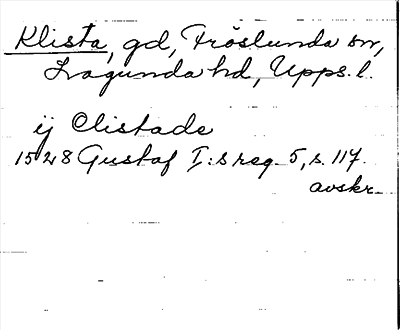 Klista, gd, Fröslunda sn,
Lagunda hd, Upps. l.
ij Clistade
1528 Gustaf I:s reg. 5, s. 117.
avskr.